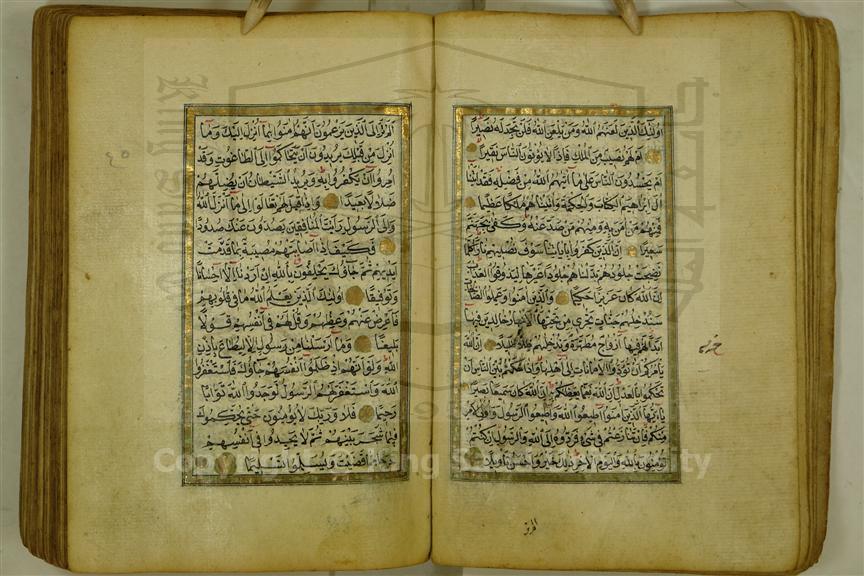 اولئك الذين لعنهم الله ومن يلعن الله فلن تجد له نصيرا
ام لهم نصيب من الملك فاذا لا يؤتون الناس نقيرا
ام يحسدون الناس على ما اتيهم الله من فضله فقد اتينا
ال ابراهيم الكتاب والحكمة واتيناهم ملكا عظيما
فمنهم من امن به ومنهم من صد عنه وكفى بجهنم
سعيرا ان الذين كفروا باياتنا سوف نصليهم نارا كلما
نضجت جلودهم بدلناهم جلودا غيرها ليذوقوا العذاب
ان الله كان عزيزا حكيما والذين امنوا وعملوا الصالحات
سندخلهم جنات تجري من تحتها الانهار خالدين فيها
ابدا لهم فيها ازواج مطهرة وندخلهم ظلا ظليلا ان الله
يامركم ان تؤدوا الامانات الى اهلها واذا حكمتم بين الناس ان
تحكموا بالعدل ان الله نعما يعظكم به ان الله كان سميعا بصيرا
يا ايها الذين امنوا اطيعوا الله واطيعوا الرسول واولي الامر
منكم فان تنازعتم في شيء فردوه الى الله والرسول ان كنتم
تؤمنون بالله واليوم الاخر ذلك خير واحسن تاويلا
الم تر الى الذين يزعمون انهم امنوا بما انزل اليك وما
انزل من قبلك يريدون ان يتحاكموا الى الطاغوت وقد
امروا ان يكفروا به ويريد الشيطان ان يضلهم
ضلالا بعيدا واذا قيل لهم تعالوا الى ما انزل الله
والى الرسول رايت المنافقين يصدون عنك صدودا
فكيف اذا اصابتهم مصيبة بما قدمت
ايديهم ثم جاؤك يحلفون بالله ان اردنا الا احسانا
وتوفيقا اولئك الذين يعلم الله ما في قلوبهم
فاعرض عنهم وعظهم وقل لهم في انفسهم قولا
بليغا وما ارسلنا من رسول الا ليطاع باذن
الله ولو انهم اذ ظلموا انفسهم جاؤك فاستغفروا
الله واستغفر لهم الرسول لوجدوا الله توابا
رحيما فلا وربك لا يؤمنون حتى يحكموك
فيما شجر بينهم ثم لا يجدوا في انفسهم
حرجا مما قضيت ويسلموا تسليما
Copyright © King Saud University